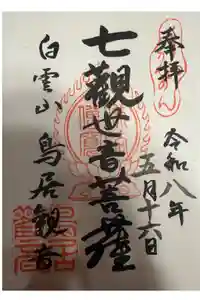 奉拝
令和八年
五月十六日
七觀世音菩薩
白雲山 鳥居観音